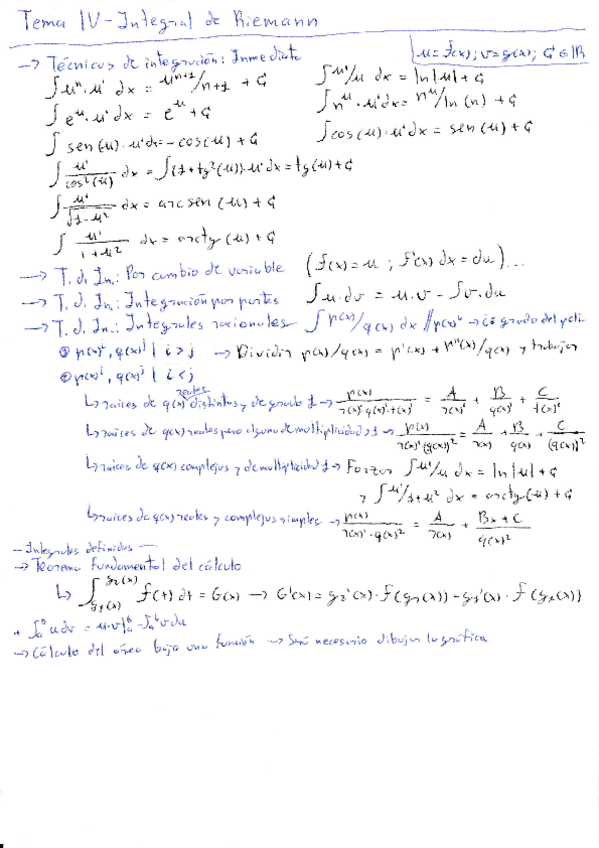 Tema IV - Integral de Riemann
→ Técnicas de integración: Inmediata
u = f(x); v = g(x); C ∈ ℝ
∫uⁿ·u' dx = uⁿ⁺¹/n+1 + C
∫u'/u dx = ln|u| + C
∫eᵘ·u' dx = eᵘ + C
∫nᵘ·u' dx = nᵘ/ln(n) + C
∫sen(u)·u'dx = -cos(u) + C
∫cos(u)·u' dx = sen(u) + C
∫u'/cos²(u) dx = ∫(1+tg²(u))·u'dx = tg(u) + C
∫u'/√1-u² dx = arcsen(u) + C
∫u'/1+u² dx = arctg(u) + C
→ T. d. In.: Por cambio de variable (f(x) = u ; f'(x) dx = du)...
→ T. d. In.: Integración por partes ∫u·dv = u·v - ∫v·du
→ T. d. In.: Integrales racionales ∫p(x)/q(x) dx // p(x)ⁱ → i = grado del poli.
① p(x)ⁱ, q(x)ʲ | i > j → Dividir p(x)/q(x) = p'(x) + p''(x)/q(x) y trabajar
② p(x)ⁱ, q(x)ʲ | i < j
↳ raíces de q(x) reales distintas y de grado 1 → p(x)/r(x)¹q(x)¹t(x)¹ = A/r(x)¹ + B/q(x)¹ + C/t(x)¹
↳ raíces de q(x) reales pero alguno de multiplicidad > 1 → p(x)/r(x)¹(q(x))² = A/r(x) + B/q(x) + C/(q(x))²
↳ raíces de q(x) complejas y de multiplicidad 1 → Forzar ∫u'/u dx = ln|u| + C
y ∫u'/1+u² dx = arctg(u) + C
↳ raíces de q(x) reales y complejas simples → p(x)/r(x)¹·q(x)² = A/r(x) + Bx+C/q(x)²
- Integrales definidas -
→ Teorema fundamental del cálculo
↳ ∫_{g₁(x)}^{g₂(x)} f(t) dt = G(x) → G'(x) = g₂'(x)·f(g₂(x)) - g₁'(x)·f(g₁(x))
+ ∫ₐᵇ u dv = u·v|ₐᵇ - ∫ₐᵇ v du
→ Cálculo del área bajo una función → Será necesario dibujar la gráfica